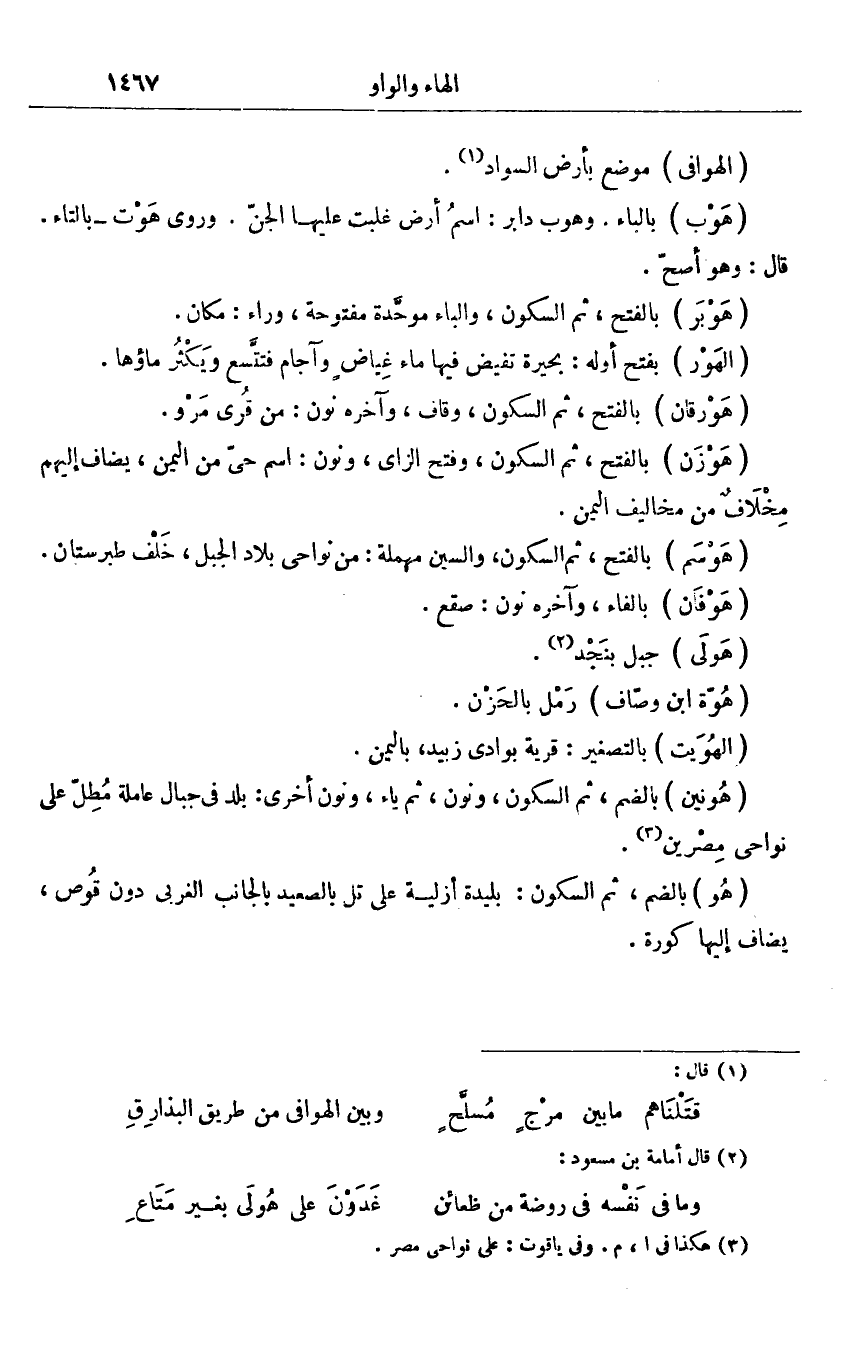 الهاء والواو ١٤٦٧
( الهوافى ) موضع بأرض السواد(١) .
( هَوْب ) بالباء . وهوب دابر : اسمُ أرض غلبت عليها الجنّ . وروى هَوْت ــ بالتاء .
قال : وهو أصحّ .
( هَوْبَر ) بالفتح ، ثم السكون ، والباء موحَّدة مفتوحة ، وراء : مكان .
( الهَوْر ) بفتح أوله : بحيرة تفيض فيها ماء غِياضٍ وآجام فتتَّسع وَيَكْثُر ماؤها .
( هَوْرقان ) بالفتح ، ثم السكون ، وقاف ، وآخره نون : من قُرى مَرْو .
( هَوْزَن ) بالفتح ، ثم السكون ، وفتح الزاى ، ونون : اسم حىّ من اليمن ، يضاف إليهم
مِخْلَافٌ من مخاليف اليمن .
( هَوْسَم ) بالفتح ، ثم السكون، والسين مهملة : من نواحى بلاد الجبل ، خَلْف طبرستان .
( هَوْفَان ) بالفاء ، وآخره نون : صقع .
( هَولَى ) جبل بنَجْد(٢) .
( هُوّة ابن وصّاف ) رَمْل بالحَزْن .
( الهُوَيت ) بالتصغير : قرية بوادى زبيد، باليمن .
( هُونين ) بالضم ، ثم السكون ، ونون ، ثم ياء ، ونون أخرى: بلد فى جبال عاملة مُطِلّ على
نواحى مِصْرين(٣) .
( هُو ) بالضم ، ثم السكون : بليدة أزليــة على تل بالصعيد بالجانب الغربى دون قُوص ،
يضاف إليها كورة .
(١) قال :
قتَلْنَاهم مابين مرْجٍ مُسلَّحٍ وبين الهوافى من طريق البذارِقِ
(٢) قال أمامة بن مسعود :
وما فى نَفْسه فى روضة من ظعائن غَدَوْنَ على هُولَى بغــير مَتَاعِ
(٣) هكذا فى ا ، م . وفى ياقوت : على نواحى مصر .